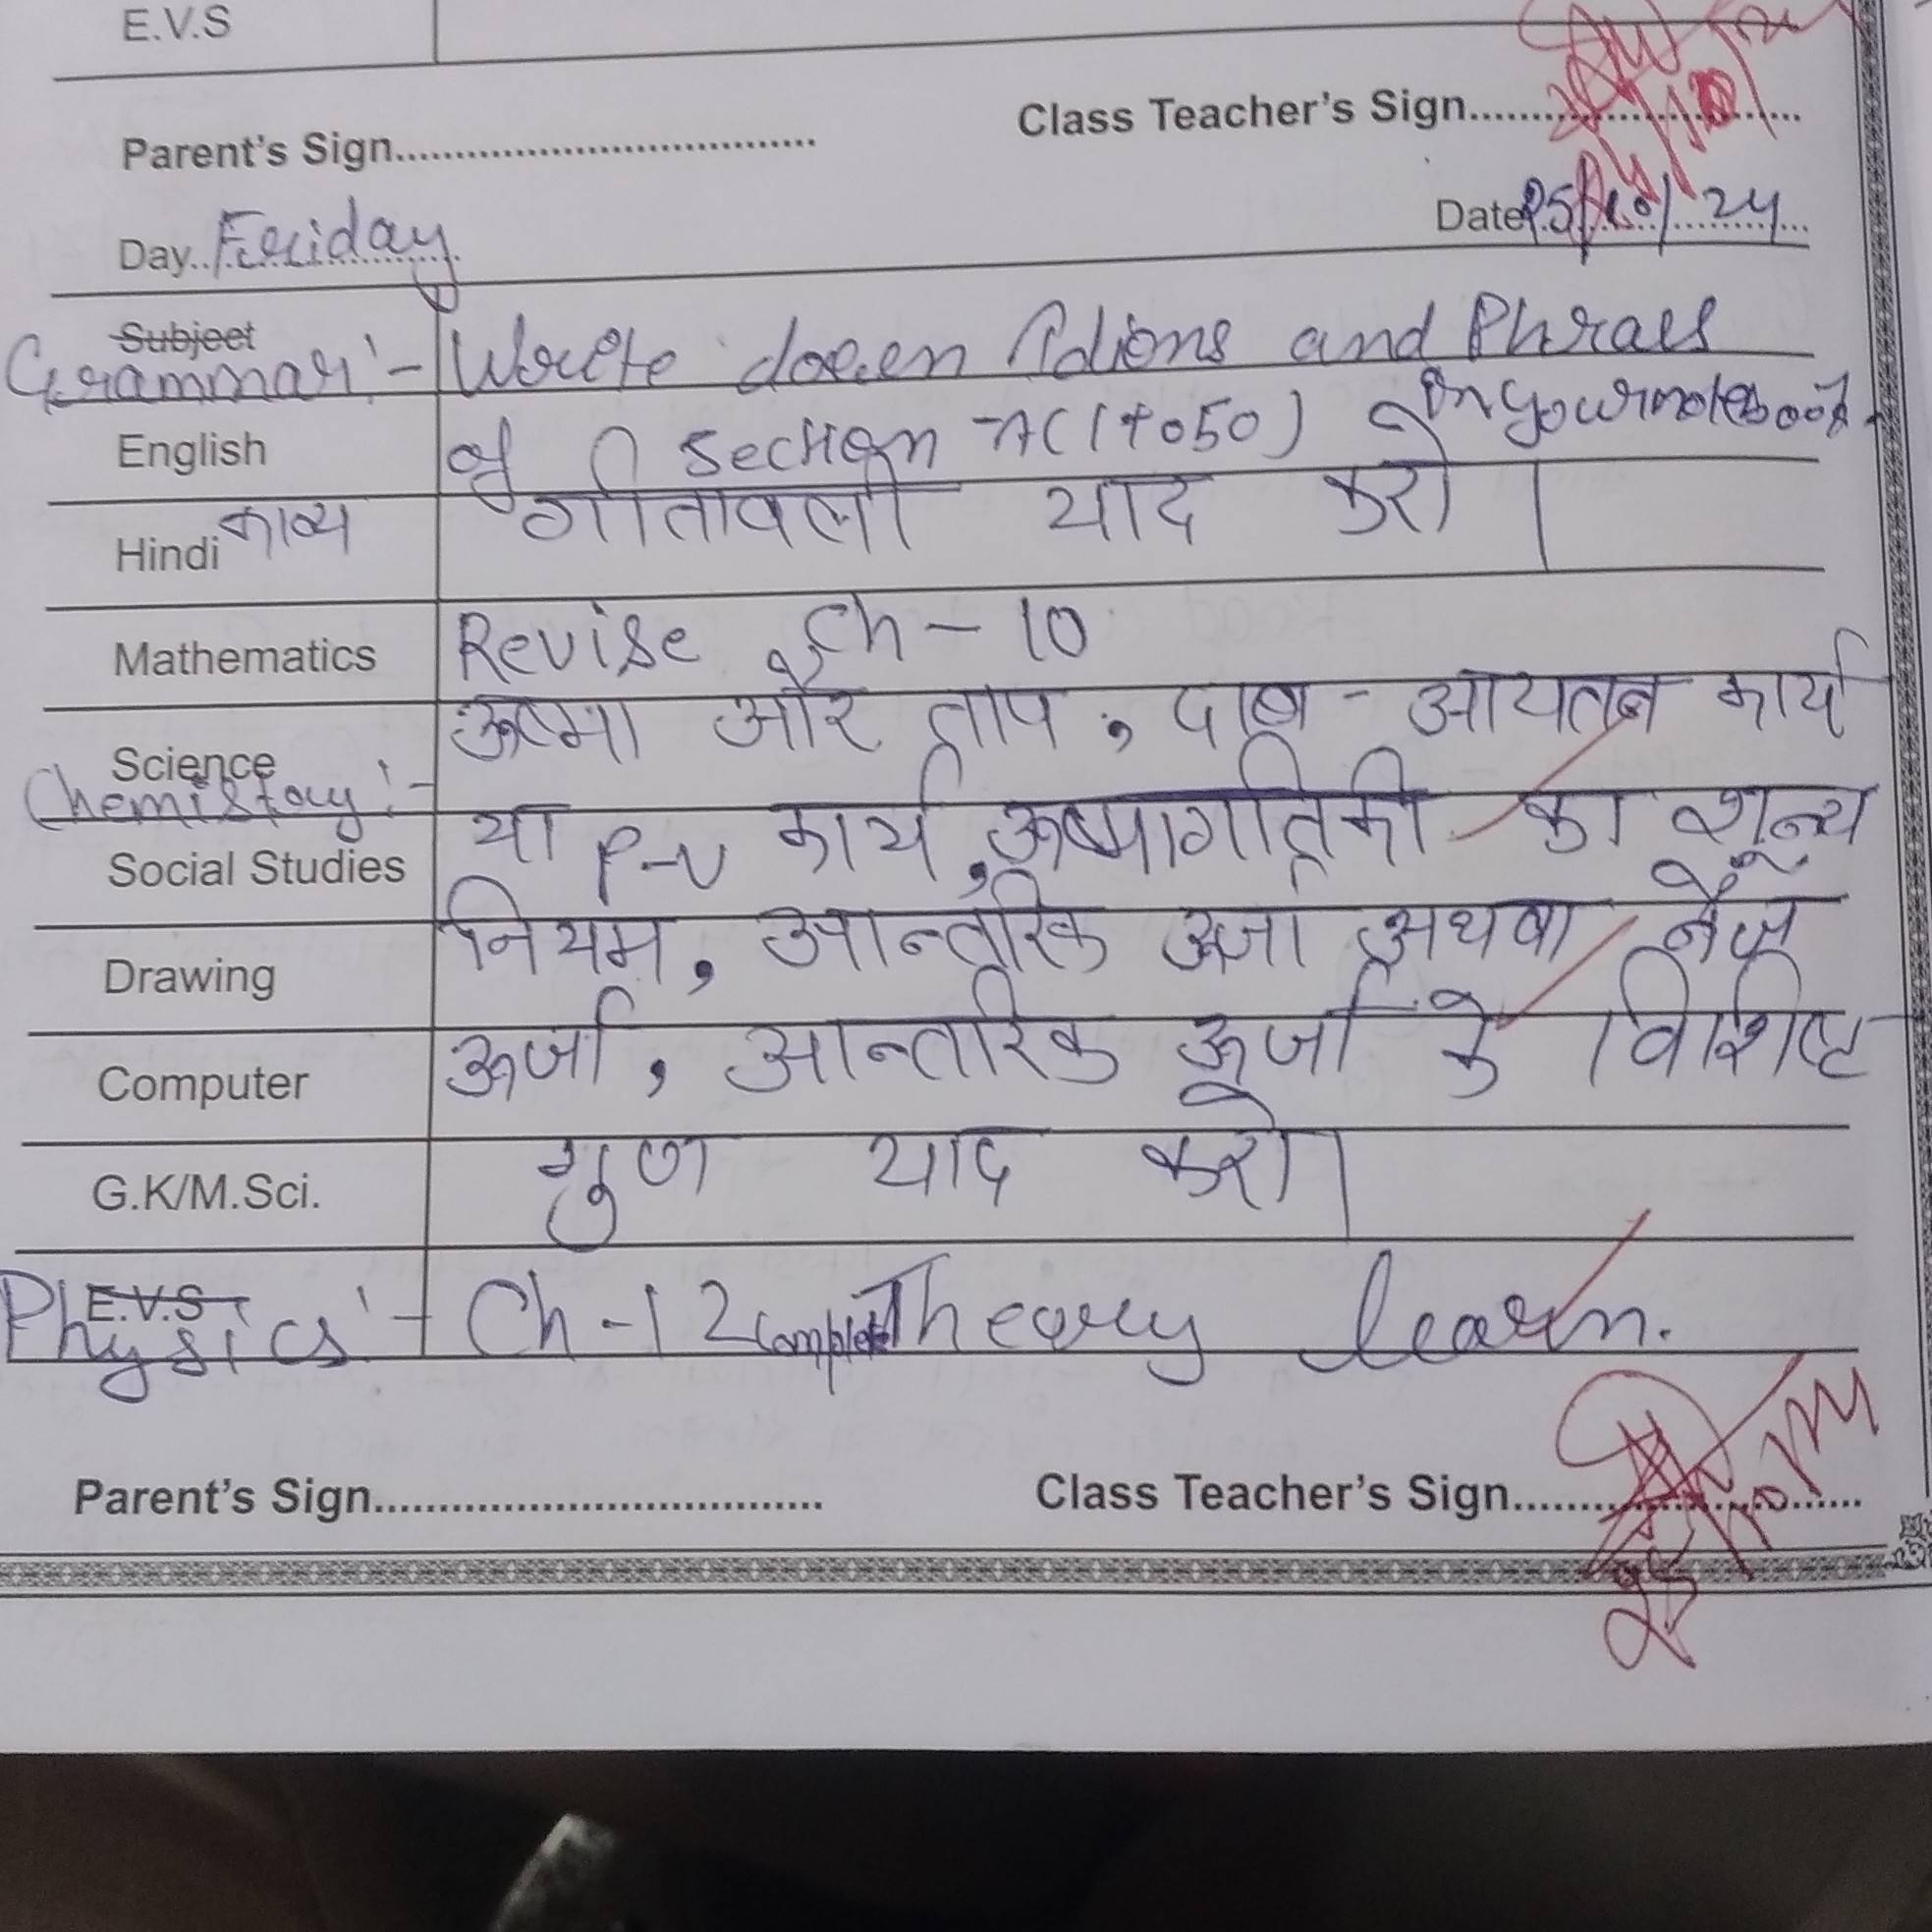 E.V.S
Parent's Sign.................................... Class Teacher's Sign............................
Day..Friday Date25/10/24
Subject
Grammar:- Write down Idioms and Phraes
English of section -A(1to50) in your notebook.
Hindi काव्य गीतावली याद करो।
Mathematics Revise Ch-10
Science ऊष्मा और ताप, दाब-आयतन कार्य
Chemistry:-
Social Studies या P-V कार्य, ऊष्मागतिकी का शून्य
Drawing नियम, आन्तरिक ऊर्जा अथवा नैज
Computer ऊर्जा, आन्तरिक ऊर्जा के विशिष्ट
G.K/M.Sci. गुण याद करो।
E.V.S
Physics:- Ch-12 complete Theory learn.
Parent's Sign.................................... Class Teacher's Sign............................